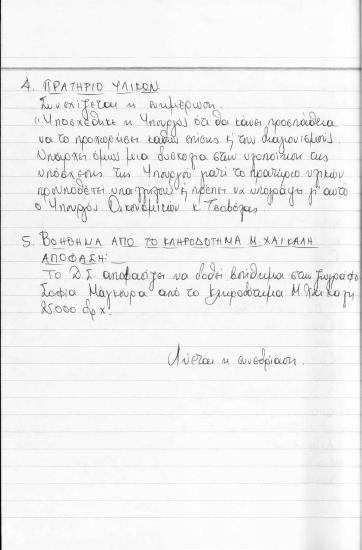 4. ΠΡΑΤΗΡΙΟ ΥΛΙΚΩΝ
Συνεχίζεται η ενημέρωση.
"Υποσχέθηκε η Υπουργός ότι θα κάνει προσπάθεια
να το προχωρήσει καθώς επίσης ή την διαγωνισμούς.
Υπάρχει όμως μια δυσκολία στην υλοποίηση της
υπόσχεσης της Υπουργού γιατί το πρατήριο υλικών
προϋποθέτει υπαλλήλους ή πρέπει να υπογράψει γι' αυτό
ο Υπουργός Οικονομικών κ Τσοβόλας.
5. ΒΟΗΘΗΜΑ ΑΠΟ ΤΟ ΚΛΗΡΟΔΟΤΗΜΑ Μ. ΧΑΪΚΑΛΗ
ΑΠΟΦΑΣΗ:
Το Δ.Σ. αποφασίζει να δοθεί βοήθημα στην ζωγράφο
Σοφία Μάγκουρα από το κληροδότημα Μ. Χαϊκαλη
25.000 δρχ.
Λύεται η συνεδρίαση.